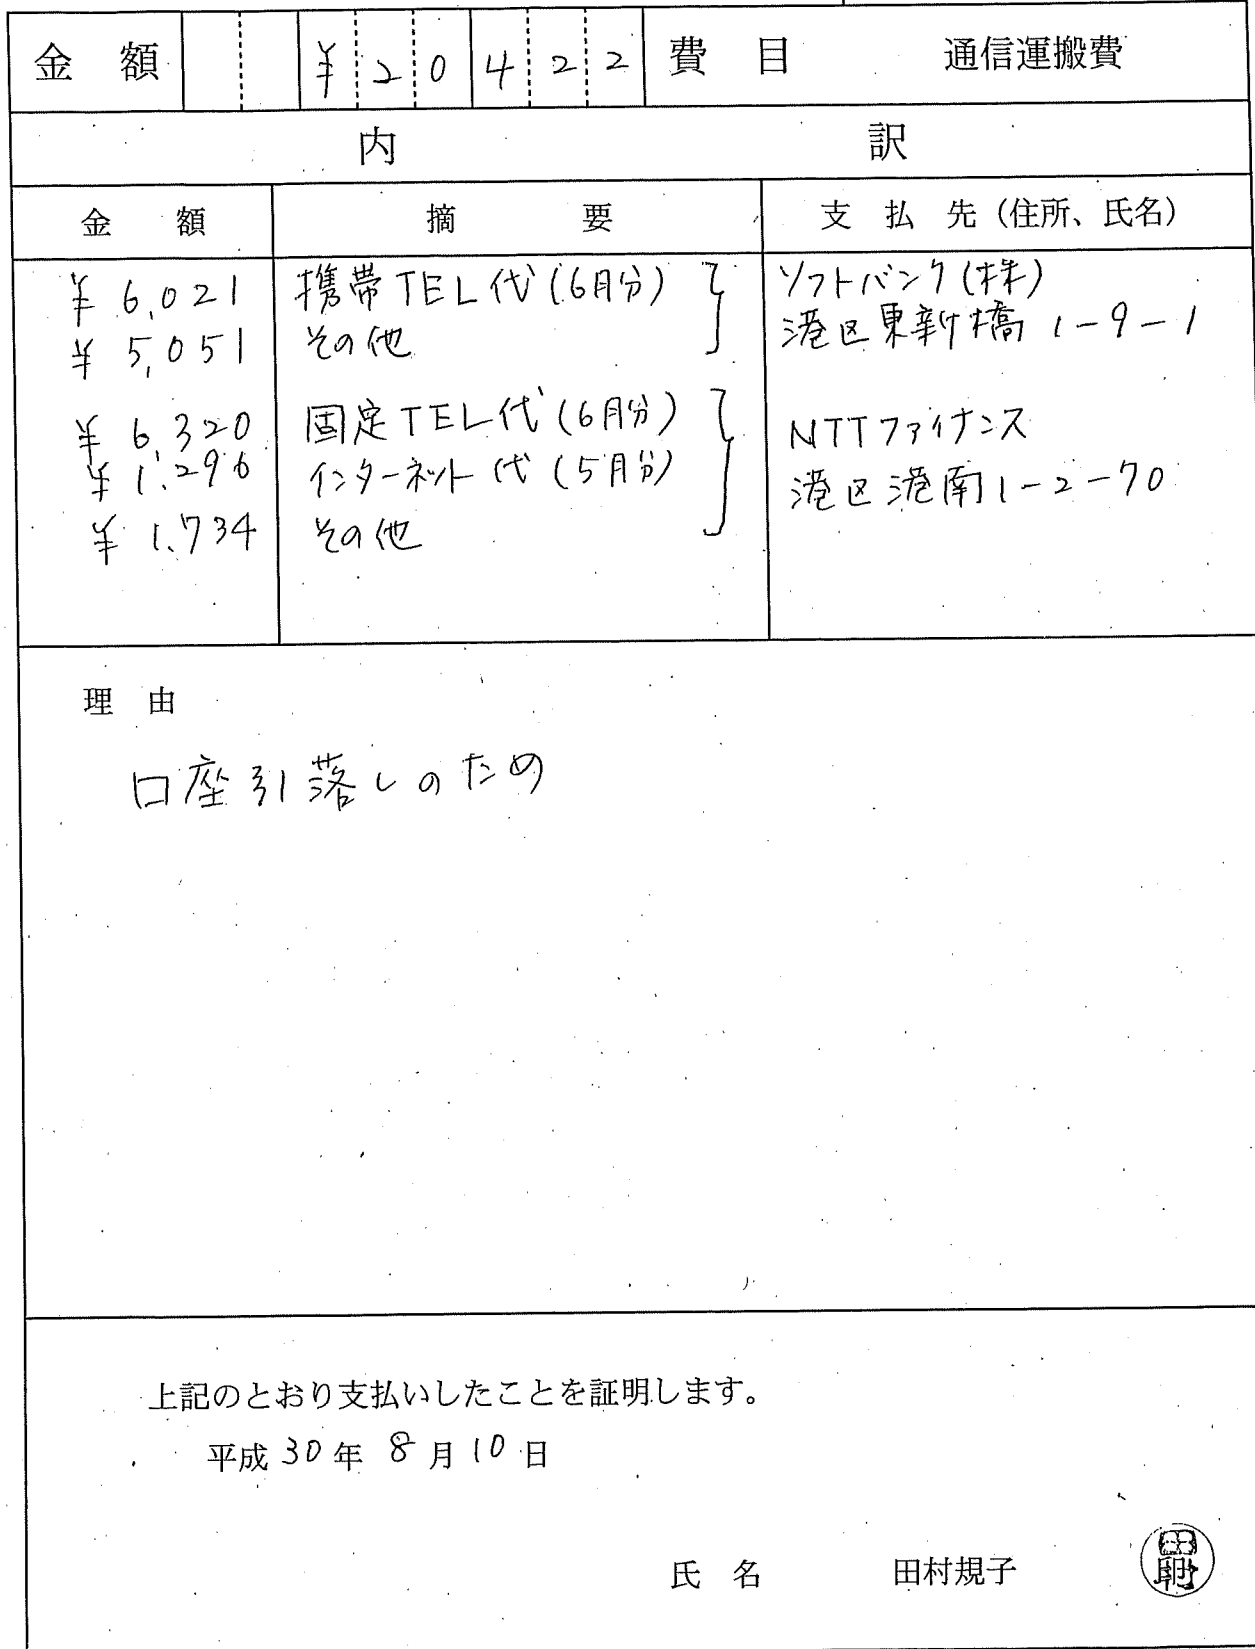 金額 ¥20422 費目 通信運搬費
内訳
金額 摘要 支払先（住所、氏名）
¥6,021 携帯TEL代（6月分） ソフトバンク（株）
¥5,051 その他 港区東新橋1-9-1
¥6,320 固定TEL代（6月分） NTTファイナンス
¥1,296 インターネット代（5月分） 港区港南1-2-70
¥1,734 その他
理由
口座引落しのため
上記のとおり支払いしたことを証明します。
平成30年8月10日
氏名 田村規子
田村